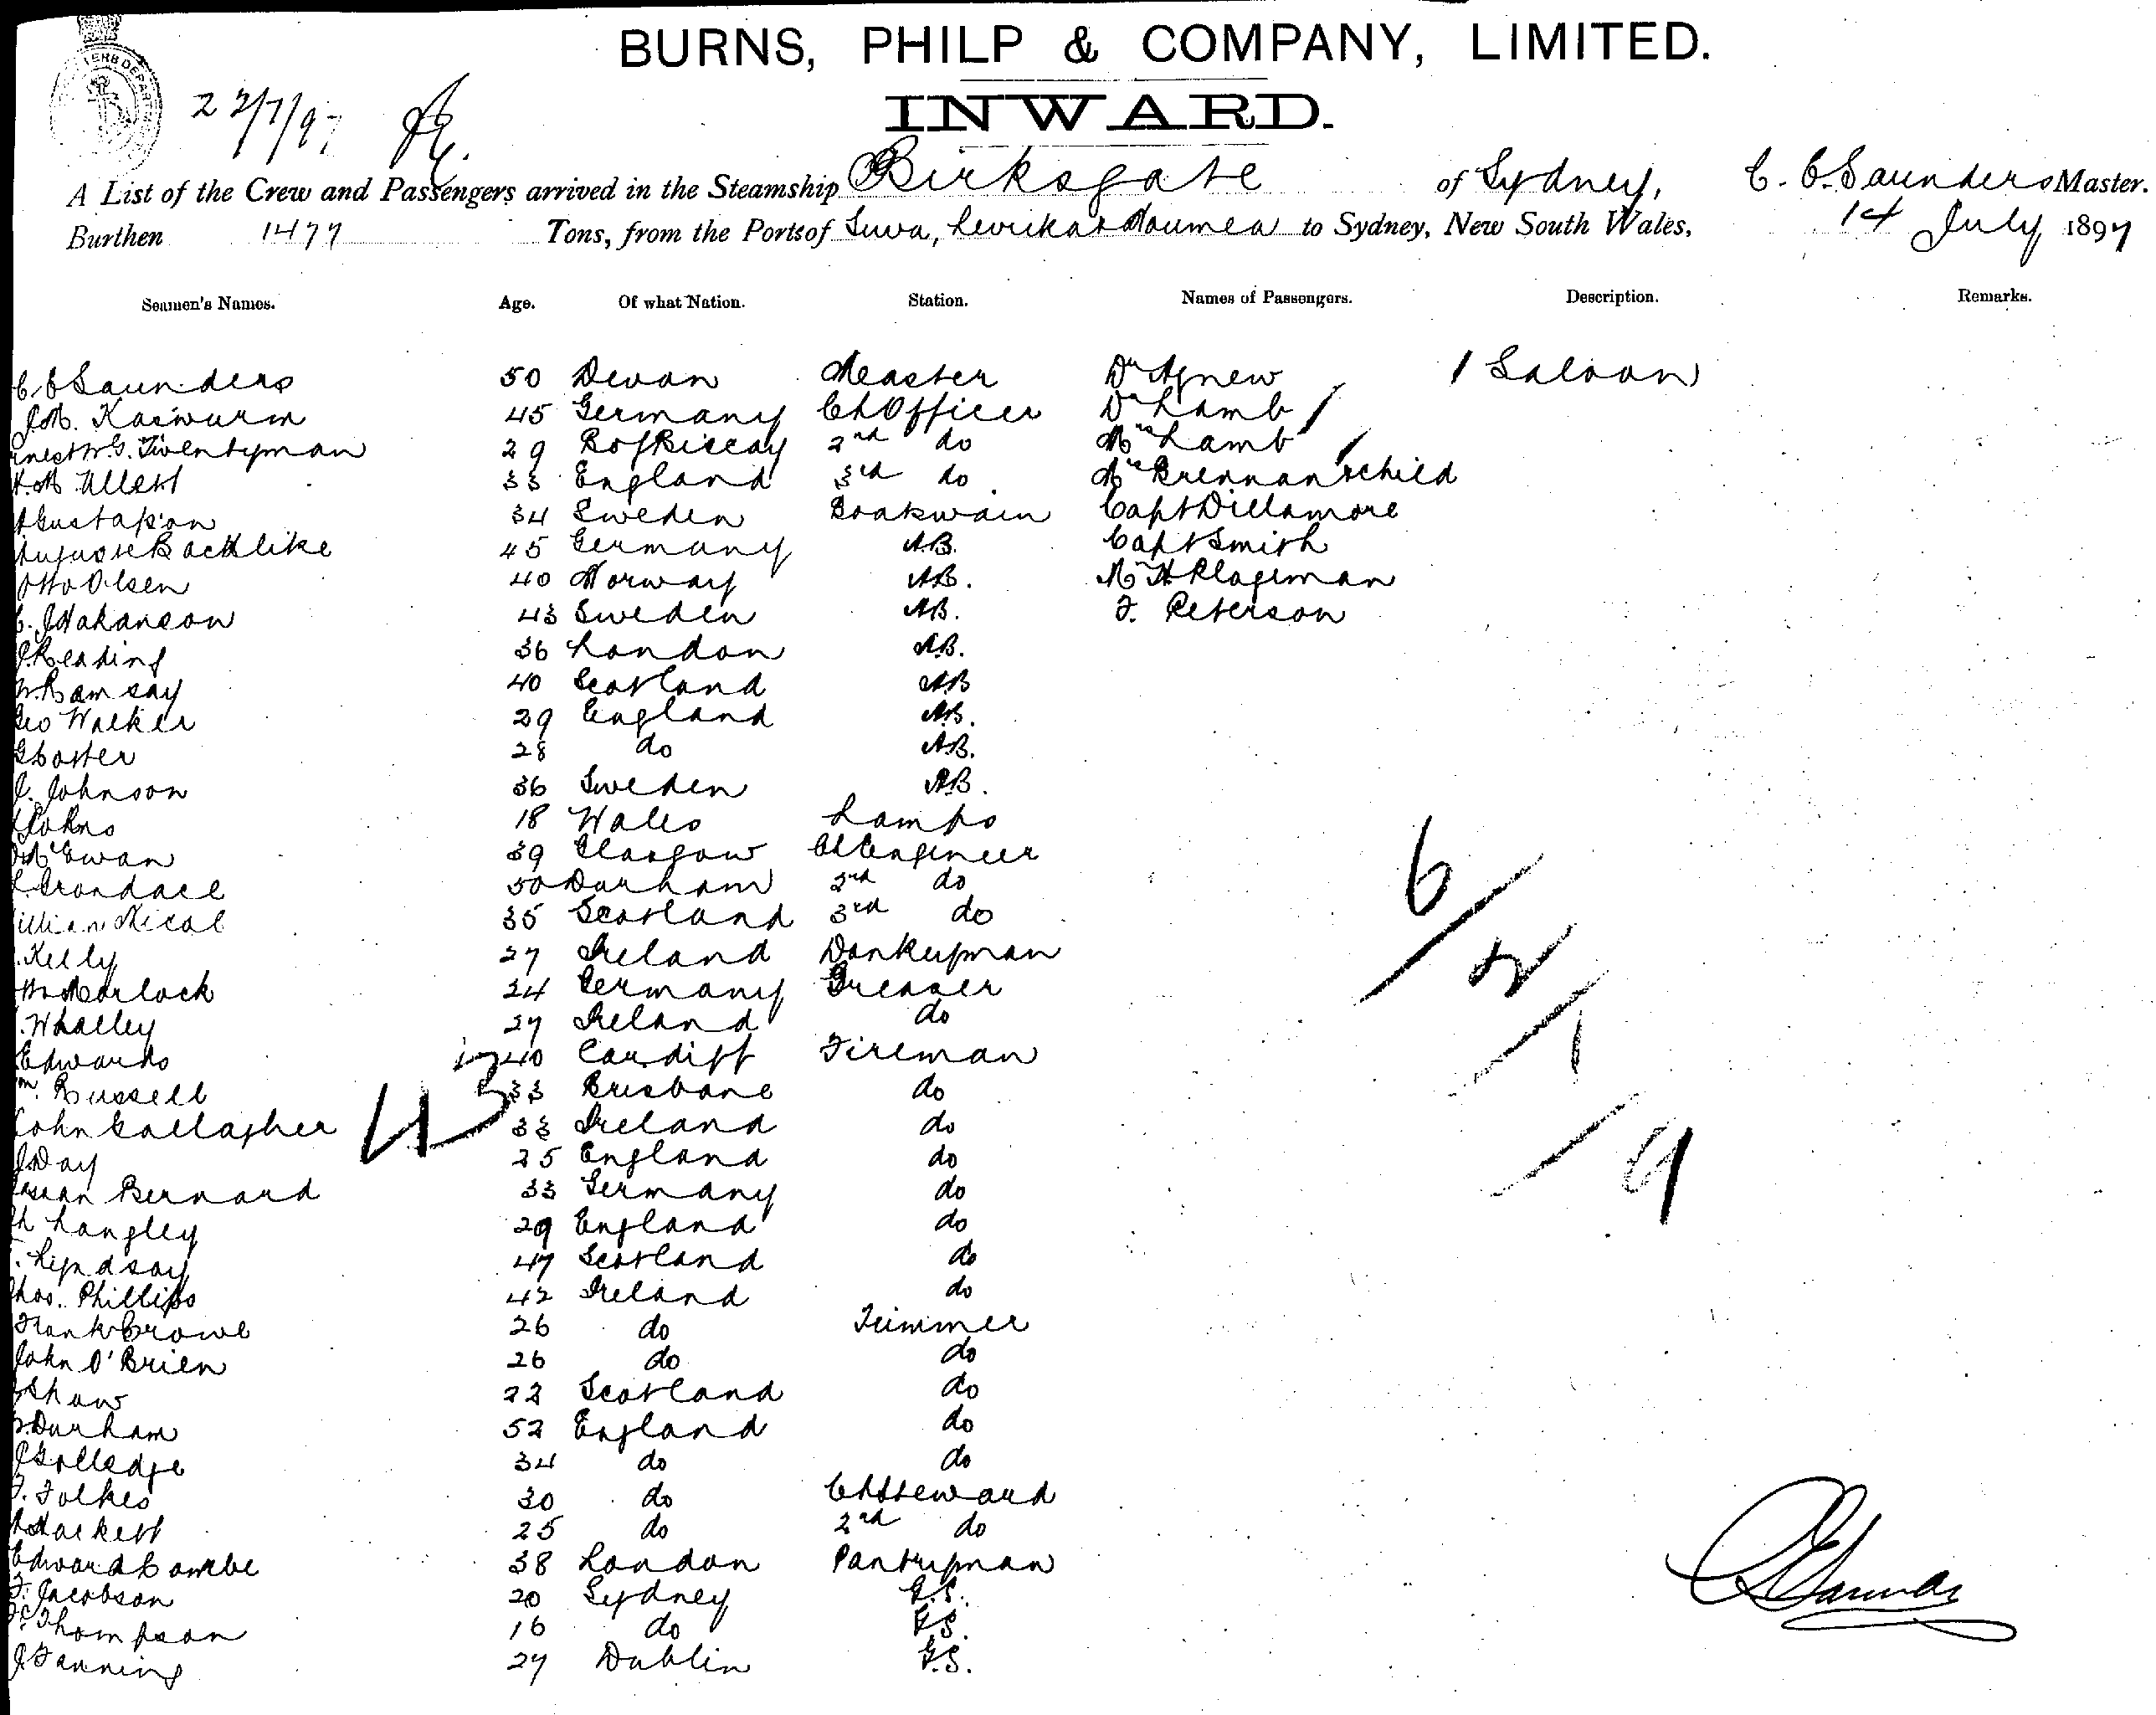 BURNS, PHILP & COMPANY, LIMITED.
INWARD.
22/7/97
A List of the Crew and Passengers arrived in the Steamship Birksgate of Sydney, C. C. Saunders Master.
Burthen 1477 Tons, from the Ports of Suva, Levuka & Noumea to Sydney, New South Wales, 14 July 1897
Seamen's Names. Age. Of what Nation. Station. Names of Passengers. Description. Remarks.
C C Saunders 50 Devon Master Dr Agnew 1 Saloon
J.M. Kaswurm 45 Germany Ch Officer Dr Lamb /
Ernest W.G. Twentyman 29 B of Biscay 2nd do Mrs Lamb /
H.M. Ullett 33 England 3rd do Mrs Brennan & child
A Gustafson 34 Sweden Boatswain Capt Dillamore
August Backlike 45 Germany AB. Capt Smith
Otto Olsen 40 Norway AB. Mr H Plageman
C. J Hakanson 43 Sweden AB. F. Peterson
J. Reading 36 London AB.
W. Ramsay 40 Scotland AB
Geo Walker 29 England AB.
G Coster 28 do AB.
J. Johnson 36 Sweden AB.
Johns 18 Wales Lamps
McEwan 39 Glasgow Ch Engineer
Crondace 50 Durham 2nd do
William Nicol 35 Scotland 3rd do
Kelly 27 Ireland Donkeyman
Wm Morlock 24 Germany Greaser
Whalley 27 Ireland do
Edwards 40 Cardiff Fireman
Wm. Russell 33 Brisbane do
John Gallagher 33 Ireland do
J Day 25 England do
Bernard 33 Germany do
Langley 29 England do
Lyndsay 47 Scotland do
Thos. Phillips 42 Ireland do
Frank Crowe 26 do Trimmer
John O'Brien 26 do do
Shaw 22 Scotland do
W. Durham 52 England do
J Golledge 34 do do
F. Folkes 30 do Ch Steward
Hackett 25 do 2nd do
Edward Combe 38 London Pantryman
F. Jacobson 20 Sydney G.S.
Thompson 16 do G.S.
J. Fanning 27 Dublin G.S.
43
6/2/1/9
C C Saunders